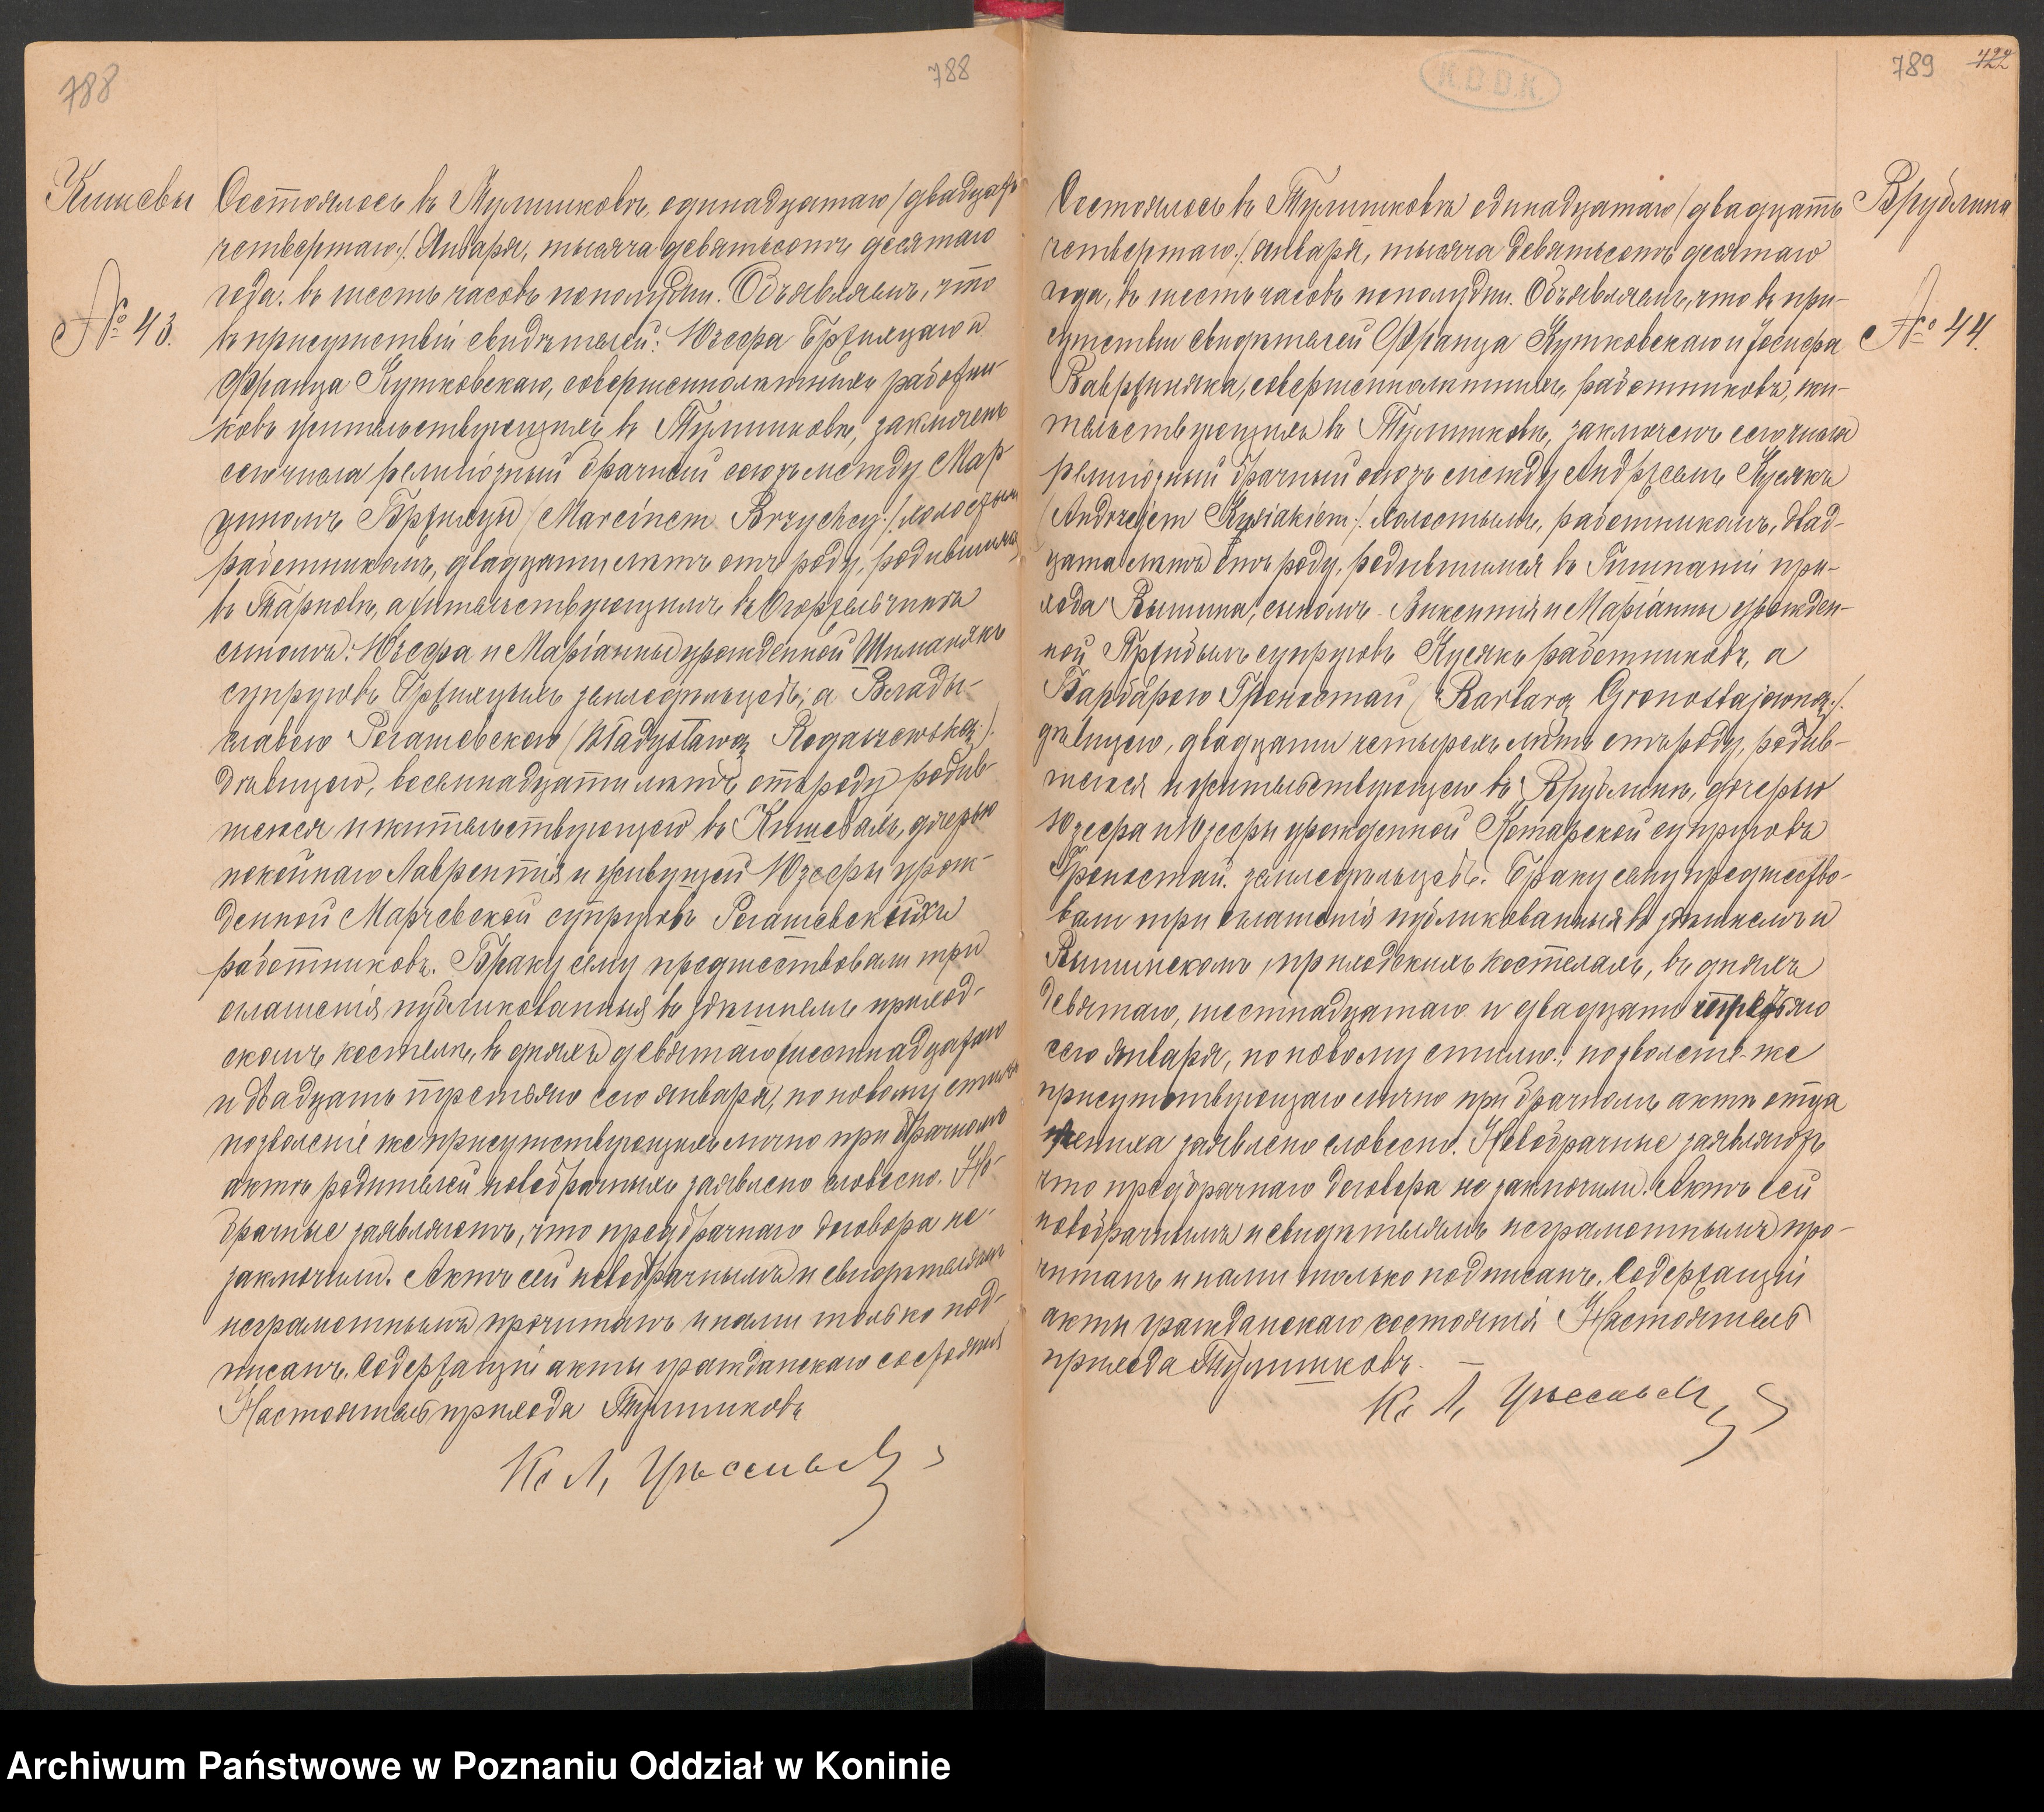 788
788
Кишевы
№ 43.
Состоялось въ Тулишковѣ, одинадцатаго /двадцать
четвертаго/ Января, тысяча девятьсотъ десятаго
года, въ шесть часовъ пополудни. Объявляемъ, что
въ присутствіи свидѣтелей: Юзефа Бржихцаго и
Франца Кутковскаго, совершеннолѣтнихъ работни-
ковъ жительствующихъ въ Тулишковѣ, заключенъ
сего числа религіозный брачный союзъ между Мар-
циномъ Бржихцы /Marcinem Brzychcy/ холостымъ
работникомъ, двадцати лѣтъ отъ роду, родившимся
въ Тарновѣ, а жительствующимъ въ
сыномъ: Юзефа и Маріанны урожденной Шиманякъ
супруговъ Бржихцыхъ земледѣльцевъ; а Влады-
славою Рогашевскою /Władysławą Rogaszewską/.
дѣвицею, восемнадцати лѣтъ отъ роду родив-
шеюся и жительствующею въ Кишевахъ, дочерью
покойнаго Лаврентія и живущей Юзефы урож-
денной Марчевской супруговъ Рогашевскихъ
работниковъ. Браку сему предшествовали три
оглашенія публикованныя въ здѣшнемъ приход-
скомъ костелѣ, въ дняхъ девятаго, шестнадцатаго
и двадцать третьяго сего января, по новому стилю
позволеніе же присутствующихъ лично при брачномъ
актѣ родителей новобрачныхъ заявлено словесно. Но-
брачные заявляютъ, что предбрачнаго договора не-
заключили. Актъ сей новобрачнымъ и свидѣтелямъ
неграмотнымъ прочитанъ и нами только под-
писанъ. Содержащій акты гражданскаго состоянія
Настоятель прихода Тулишковъ
Кс Л,
789 422
K.D D.K.
Врублина
№ 44.
Состоялось въ Тулишковѣ одинадцатаго /двадцать
четвертаго/ Января, тысяча девятьсотъ десятаго
года, въ шесть часовъ пополудни. Объявляемъ, что въ при-
сутствіи свидѣтелей Франца Кутковскаго и Іосифа
Вавржиняка, совершеннолѣтнихъ, работниковъ, жи-
тельствующихъ въ Тулишковѣ, заключенъ сего числа
религіозный брачный союзъ между Андржеемъ Кусякъ
/Andrzejem Kusiakiem/. холостымъ, работникомъ, двад-
цата лѣтъ отъ роду, родившимся въ при-
хода Вышина, сыномъ Викентія и Маріанны урожден-
ной супруговъ Кусякъ работниковъ, а
Барбарою Гроностай /Barbarą Gronostajowną/.
дѣвицею, двадцати четырехъ лѣтъ отъ роду, родив-
шеюся и жительствующею въ Врублинѣ, дочерью
Юзефа и Юзефы урожденной Котарской супруговъ
Гроностай. земледѣльцевъ. Браку сему предшество-
вали три оглашенія публикованныя въ здѣшнемъ и
Вышинскомъ, приходскихъ костелахъ, въ дняхъ
девятаго, шестнадцатаго и двадцать третьяго
сего Января, по новому стилю; позволеніе-же
присутствующаго лично при брачномъ актѣ отца
жениха заявлено словесно. Новобрачные заявляютъ
что предбрачнаго договора не заключили. Актъ сей
новобрачнымъ и свидѣтелямъ неграмотнымъ про-
читанъ и нами только подписанъ. Содержащій
акты гражданскаго состоянія Настоятель
прихода Тулишковъ. —
Кс Л,
Archiwum Państwowe w Poznaniu Oddział w Koninie